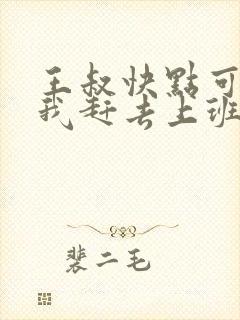 王叔快點可
我赶去上班
裴二毛